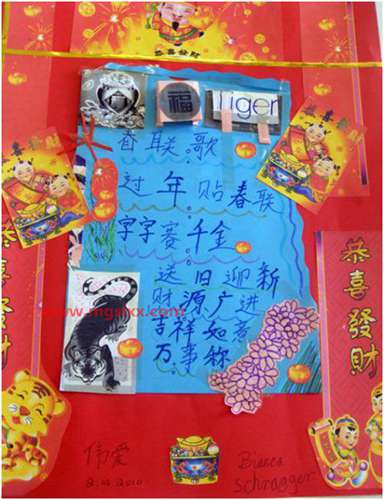 恭喜發財
福
Tiger
春联歌
过年贴春联
字字赛千金
送旧迎新
财源广进
吉祥如意
万事称
恭喜發財
www.mgslxx.com
伟爱
2.10.2010
Bianca
Schragger